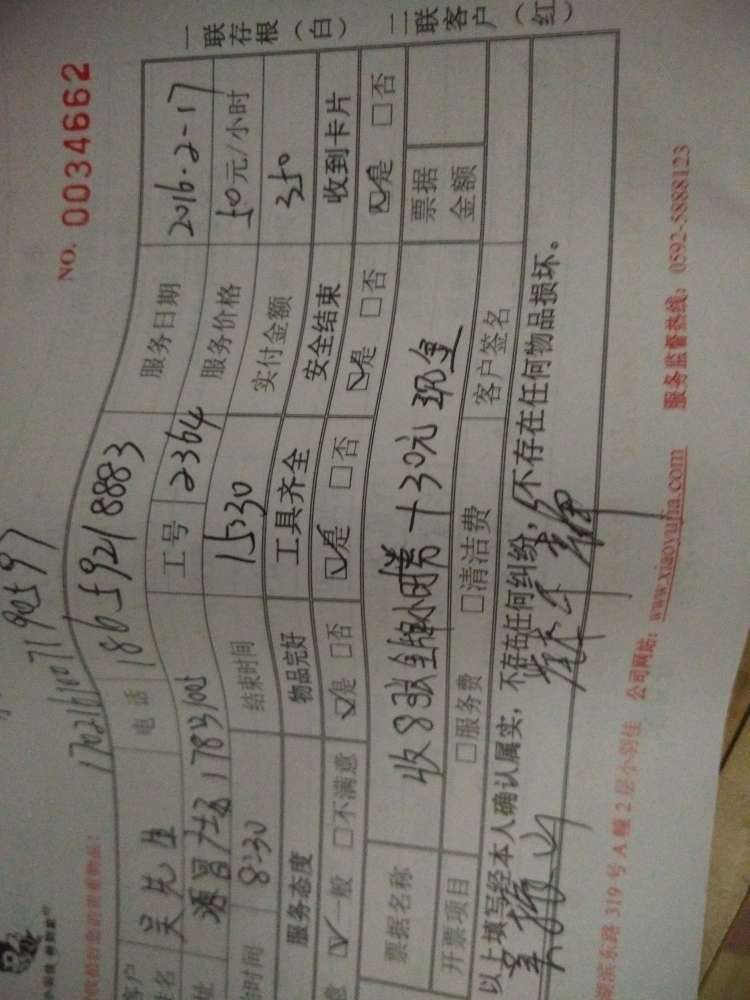 NO. 0034662
1702161007190597
客户 吴先生 电话 18659218883 服务日期 2016.2-17
源昌广场1783/005 工号 2364 服务价格 50元/小时
时间 8:30 结束时间 15:30 实付金额 350
服务态度 物品完好 工具齐全 安全结束 收到卡片
意 ☑一般 □不满意 ☑是 □否 ☑是 □否 ☑是 □否 ☑是 □否
票据名称 收8张 +30元现金 票据金额
开票项目 □服务费 □清洁费 客户签名
以上填写经本人确认属实，不存在任何纠纷，不存在任何物品损坏。
湖滨东路 319 号 A 幢 2 层小羽佳 公司网站：www.xiaoyujia.com 服务监督热线：0592-5888123
一联存根（白） 二联客户（红）